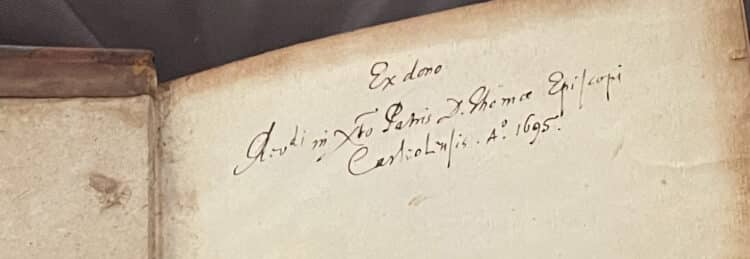 Ex dono
Rev.di in Xto Patris D. Thomæ Episcopi
Carliolensis. Ao. 1695.